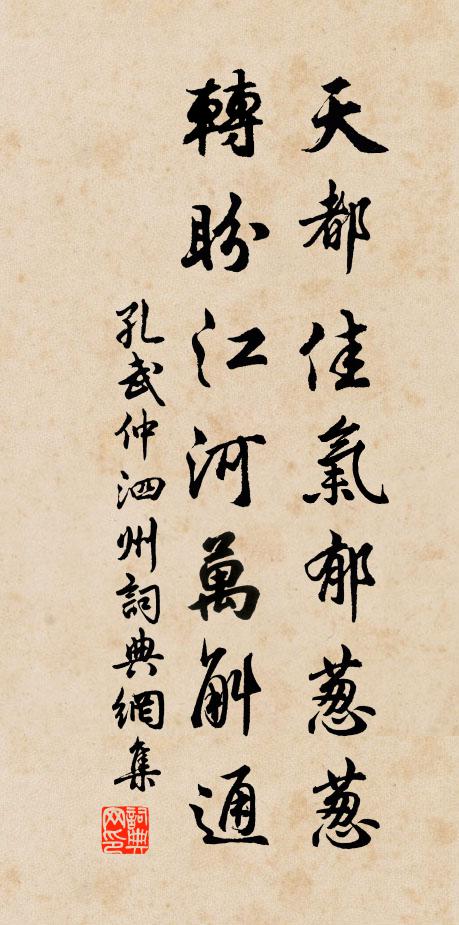 天都佳氣郁葱葱
轉盼江河萬斛通
孔武仲泗州詞典網集
詞典網印